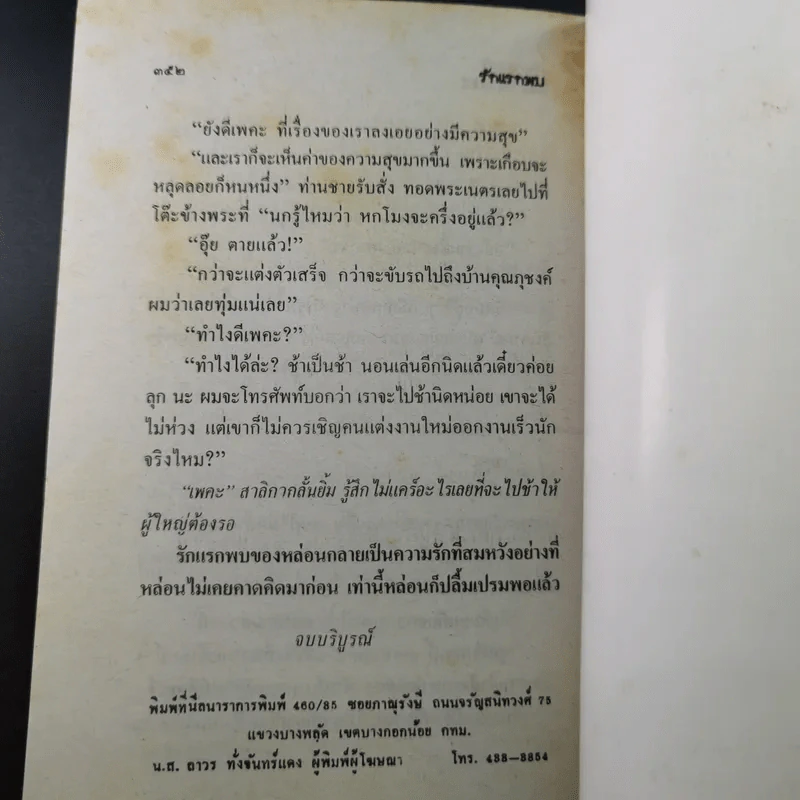 ๓๕๒ รักแรกพบ
“ยังดีเพคะ ที่เรื่องของเราลงเอยอย่างมีความสุข”
“และเราก็จะเห็นค่าของความสุขมากขึ้น เพราะเกือบจะ
หลุดลอยก็หนหนึ่ง” ท่านชายรับสั่ง ทอดพระเนตรเลยไปที่
โต๊ะข้างพระที่ “นกรู้ไหมว่า หกโมงจะครึ่งอยู่แล้ว?”
“อุ๊ย ตายแล้ว!”
“กว่าจะแต่งตัวเสร็จ กว่าจะขับรถไปถึงบ้านคุณภุชงค์
ผมว่าเลยทุ่มแน่เลย”
“ทำไงดีเพคะ?”
“ทำไงได้ล่ะ? ช้าเป็นช้า นอนเล่นอีกนิดแล้วเดี๋ยวค่อย
ลุก นะ ผมจะโทรศัพท์บอกว่า เราจะไปช้านิดหน่อย เขาจะได้
ไม่ห่วง แต่เขาก็ไม่ควรเชิญคนแต่งงานใหม่ออกงานเร็วนัก
จริงไหม?”
“เพคะ” สาลิกากลั้นยิ้ม รู้สึกไม่แคร์อะไรเลยที่จะไปช้าให้
ผู้ใหญ่ต้องรอ
รักแรกพบของหล่อนกลายเป็นความรักที่สมหวังอย่างที่
หล่อนไม่เคยคาดคิดมาก่อน เท่านี้หล่อนก็ปลื้มเปรมพอแล้ว
จบบริบูรณ์
พิมพ์ที่นีลนาราการพิมพ์ 460/85 ซอยภาณุรังษี ถนนจรัญสนิทวงศ์ 75
แขวงบางพลัด เขตบางกอกน้อย กทม.
น.ส. ถาวร ทั่งจันทร์แดง ผู้พิมพ์ผู้โฆษณา โทร. 433-3854